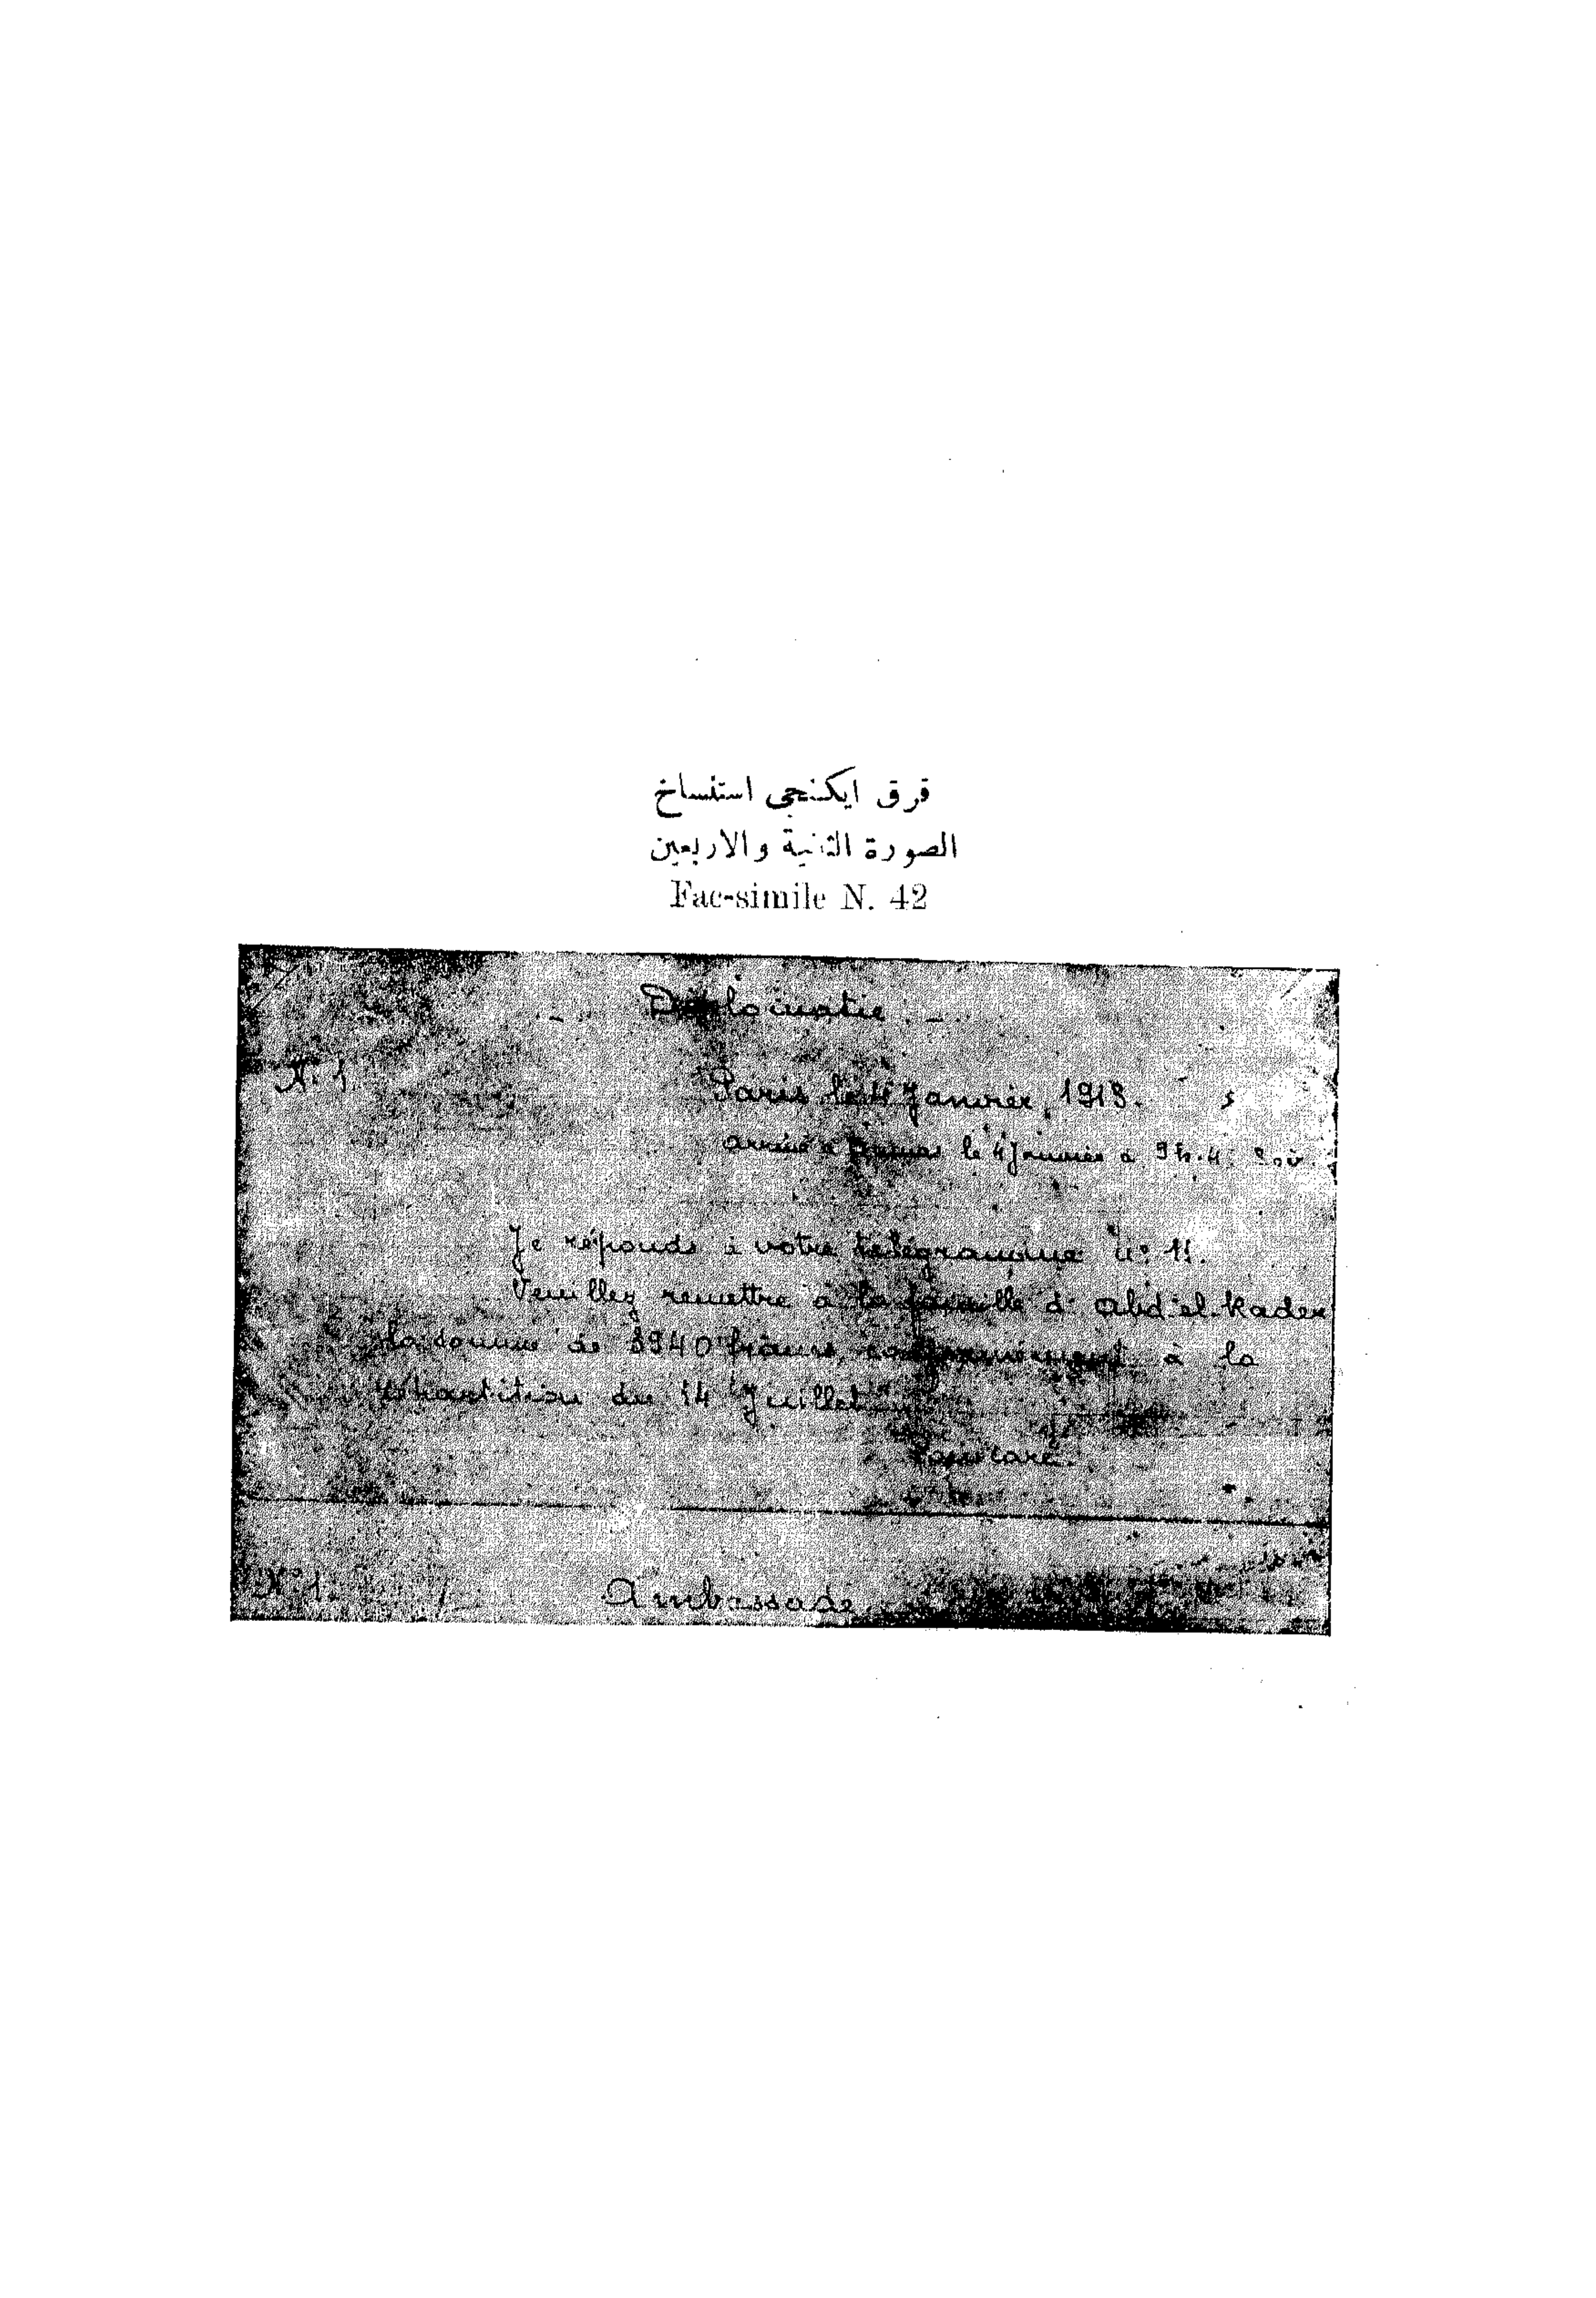 قرق ايكنجى استنساخ
الصورة الثانية والاربعين
Fac-simile N. 42
Diplomatie
N° 1.
Paris le 4 Janvier, 1913.
arrivé à Damas le 4 Janvier à 9 h. 4 Soir
Je réponds à votre télégramme n° 11.
Veuillez remettre à la famille d'Abd-el-Kader
la somme de 3940 francs, conformément à la
répartition du 14 Juillet
Poincaré.
N° 1. Ambassade